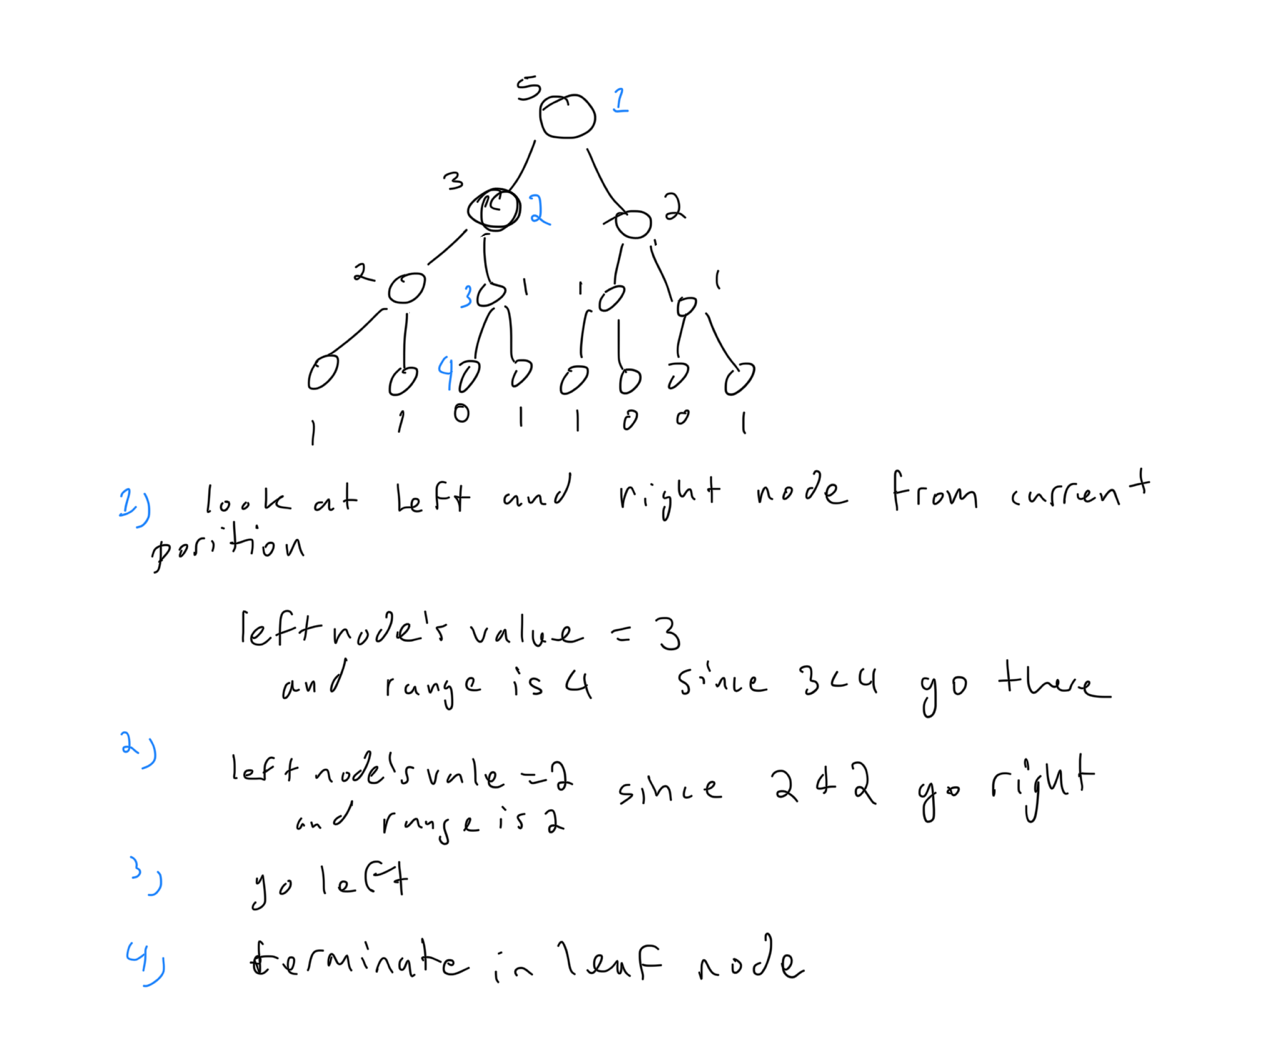 5 1
3 2 2
2 3 1 1 1
4
1 1 0 1 1 0 0 1
1) look at left and right node from current
position
left node's value = 3
and range is 4 since 3<4 go there
2)
left node's vale =2
and range is 2 since 2 ≮ 2 go right
3) go left
4) terminate in leaf node